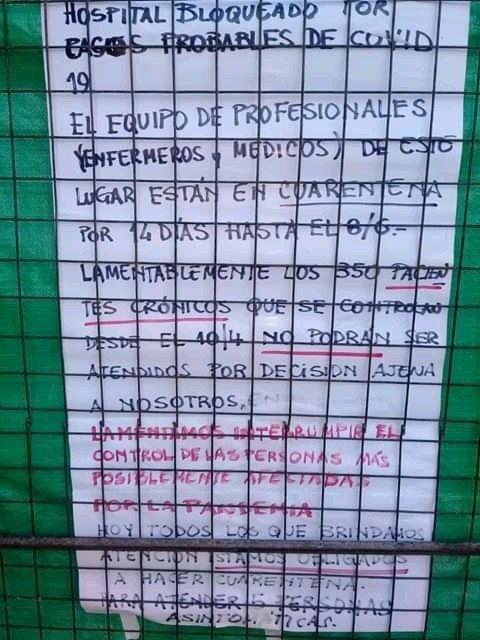 HOSPITAL BLOQUEADO POR
CASOS PROBABLES DE COVID
19
EL EQUIPO DE PROFESIONALES
(ENFERMEROS y MEDICOS) DE ESTE
LUGAR ESTÁN EN CUARENTENA
POR 14 DÍAS HASTA EL 8/6.-
LAMENTABLEMENTE LOS 350 PACIEN
TES CRÓNICOS QUE SE CONTROLAN
DESDE EL 10/4 NO PODRÁN SER
ATENDIDOS POR DECISIÓN AJENA
A NOSOTROS, EN
LAMENTAMOS INTERRUMPIR EL
CONTROL DE LAS PERSONAS MÁS
POSIBLEMENTE AFECTADAS
POR LA PANDEMIA
HOY TODOS LOS QUE BRINDAMOS
ATENCIÓN ESTAMOS OBLIGADOS
A HACER CUARENTENA.
PARA ATENDER 5 PERSONAS
ASINTOMÁTICAS.